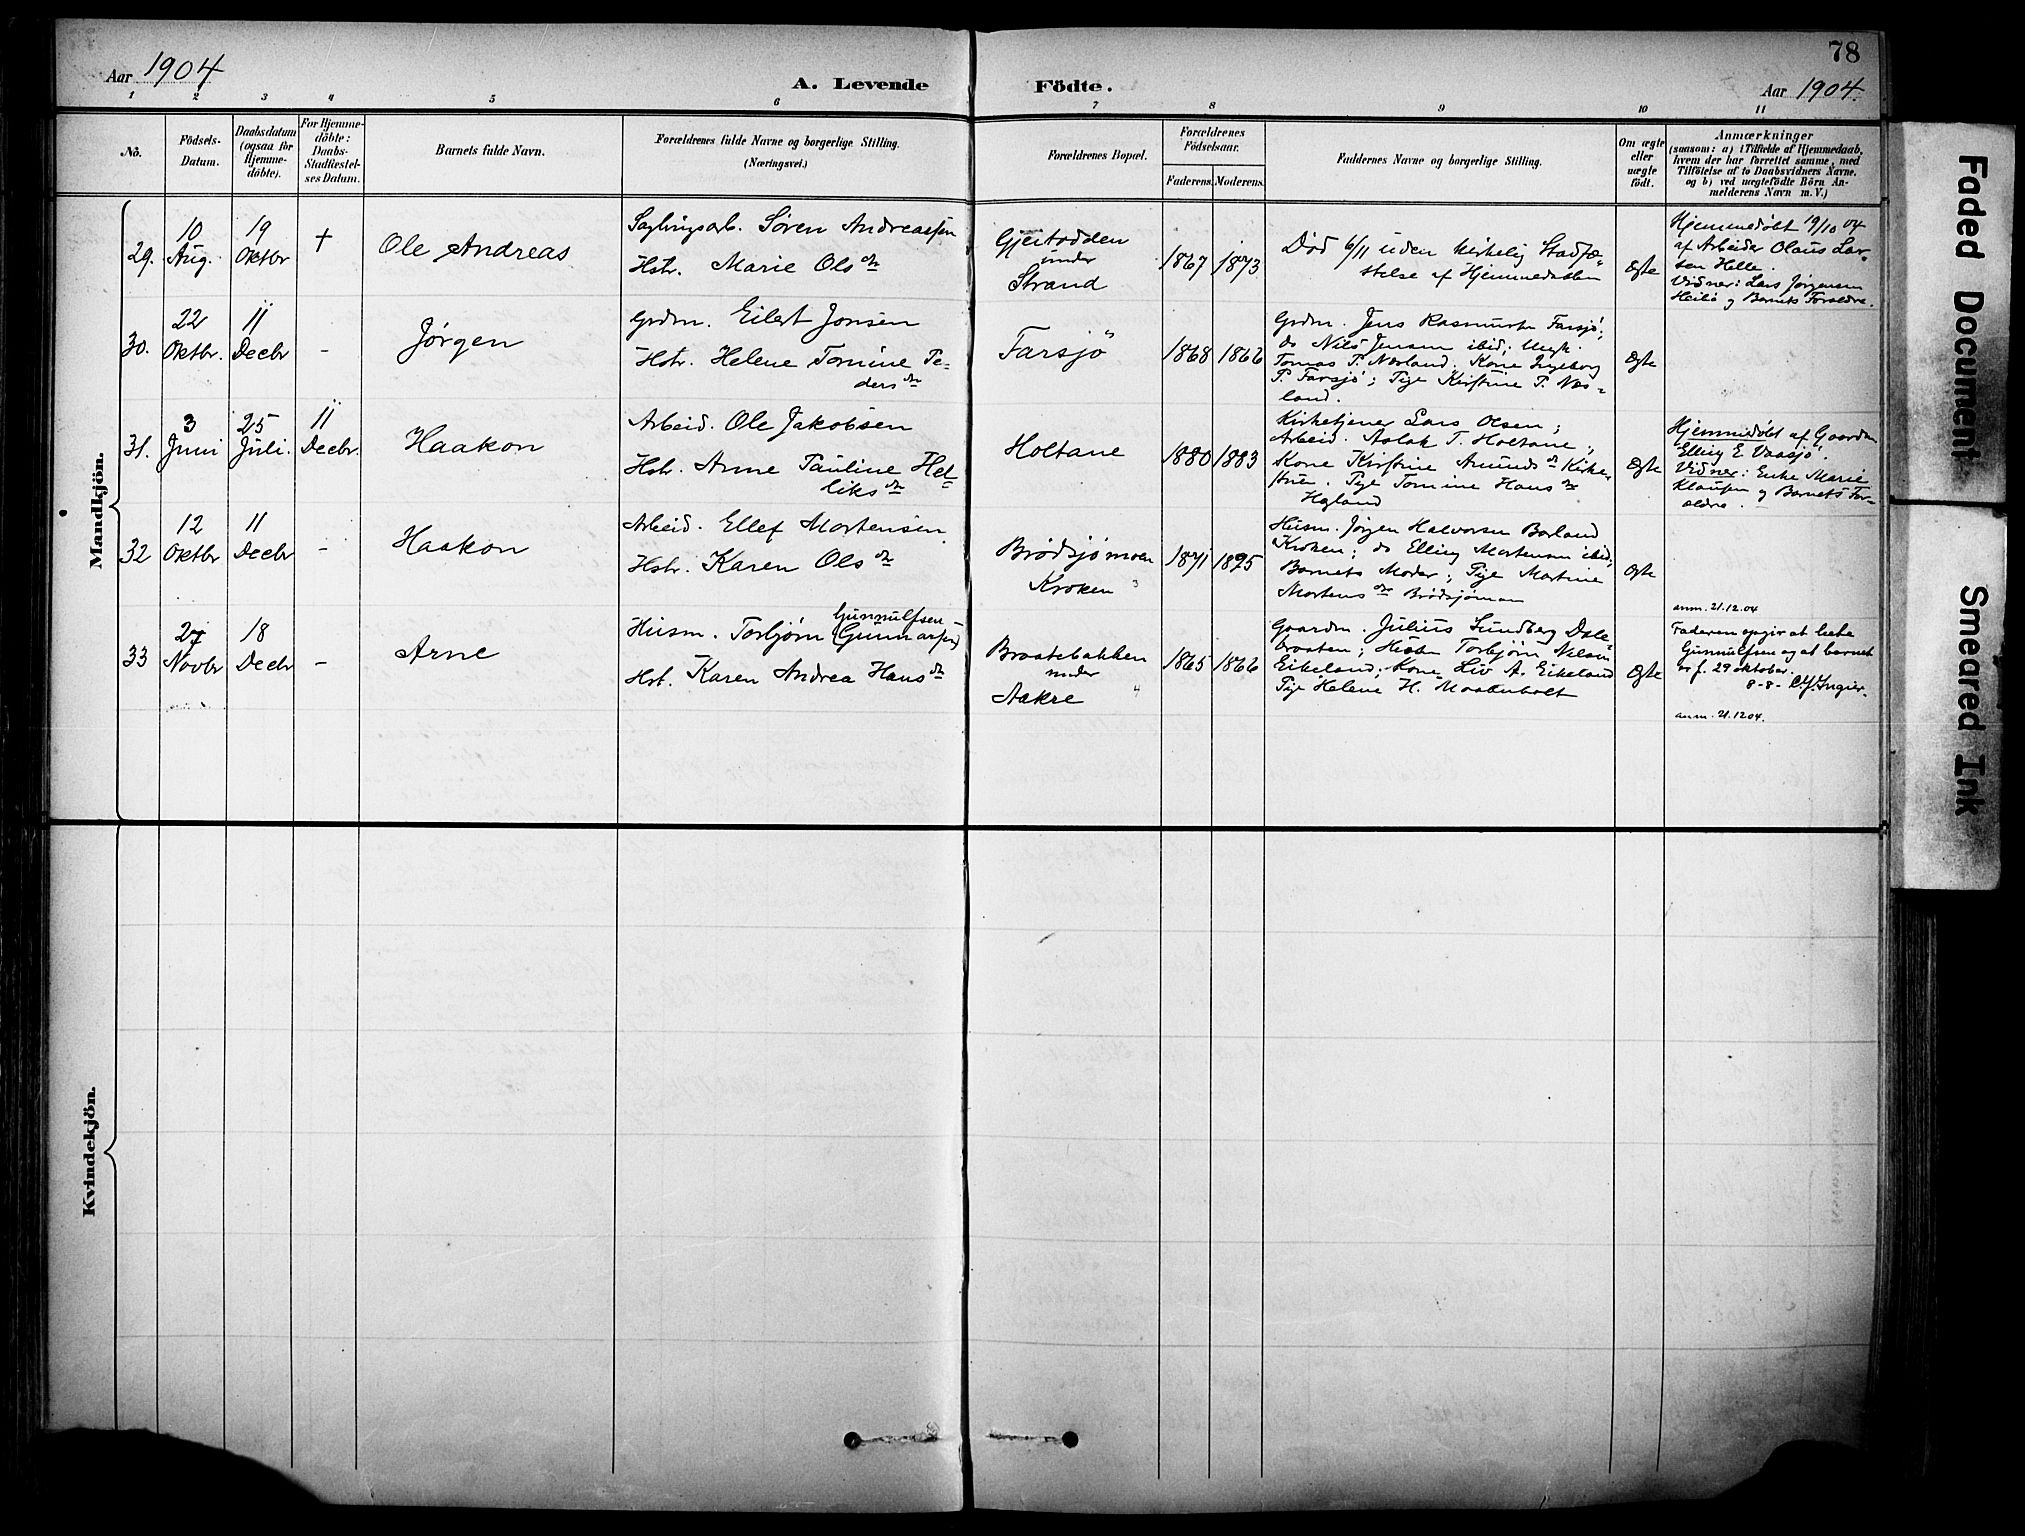 78
Aar 1904
A. Levende Fødte.
Aar 1904.
1 2 3 4 5 6 7 8 9 10 11
No.
Födsels-
Datum.
Daabsdatum
(ogsaa for
Hjemme-
döbte).
For Hjemme-
döbte:
Daabs-
Stadfæstel-
ses Datum.
Barnets fulde Navn.
Forældrenes fulde Navne og borgerlige Stilling.
(Næringsvei.)
Forældrenes Bopæl.
Forældrenes
Födselsaar.
Faderens. Moderens.
Faddernes Navne og borgerlige Stilling.
Om ægte
eller
uægte
födt.
Anmærkninger
(saasom: a) i Tilfælde af Hjemmedaab,
hvem der har forrettet samme, med
Tilføielse af to Daabsvidners Navne.
og b) ved uægtefödte Börn An-
melderens Navn m. V.)
Mandkjön.
29.
10
Aug.
19
Oktbr
+
Ole Andreas
Søren Andreassen
Hstr. Marie Olsdr
Gjeitodden
under
Strand
1867 1873
Død 6/11 uden kirkelig Stadfæ-
stelse af Hjemmedaaben
Ægte
Hjemmedøbt 19/10 04
af Arbeider Olaus Lar-
sen Helle.
Vidner: Lars Jørgensen
Heilø og Barnets Forældre.
30.
22
Oktbr.
11
Decbr
-
Jørgen
Grdm. Eilert Jonsen
Hstr. Helene Tomine Pe-
dersdr
Farsjø
1868 1866
Grdm. Jens Rasmusen Farsjø;
do Nils Jensen ibid; Ungk.
Tomas P. Næsland. Kone Ingeborg
P. Farsjø; Pige Kirstine P. Næs-
land.
Ægte
31.
3
Juni
25
Juli.
11
Decbr.
Haakon
Arbeid. Ole Jakobsen
Hstr. Anne Pauline Hel-
liksdr
Holtane
1880 1883
Kirketjener Lars Olsen;
Arbeid. Aslak T. Holtane;
Kone Kirstine Amundsdr Kirke-
Pige Tomine Hansdr
Hegland
Ægte
Hjemmedøbt af Gaardm
Elling E. Vaasjø.
Vidner: Enke Marie
Klausen og Barnets For-
ældre.
32
12
Oktbr
11
Decbr
-
Haakon
Arbeid. Ellef Mortensen
Hstr. Karen Olsdr
Brødsjømoen
Kroken
1871 1895
Husm. Jørgen Halvorsen Borland
Kroken; do Elling Mortensen ibid;
Barnets Moder; Pige Martine
Mortensdr Brødsjømoen
Ægte
anm. 21.12.04
33
27
Novbr
18
Decbr
-
Arne
Gunnulfsen
Husm. Torbjørn (Gunnarsen)
Hst. Karen Andrea Hansdr
Braatebakken
under
Aakre
1865 1866
Gaardm. Julius Sundberg Dale
braaten; Torbjørn
Eikeland; Kone Liv A. Eikeland
Pige Helene H.
Ægte
Faderen opgir at hete
Gunnulfsen og at barnet
er f. 29 oktober.
8-8- C.f. Ingier.
anm. 21.12 04.
Kvindekjön.
Faded Document
Smeared Ink